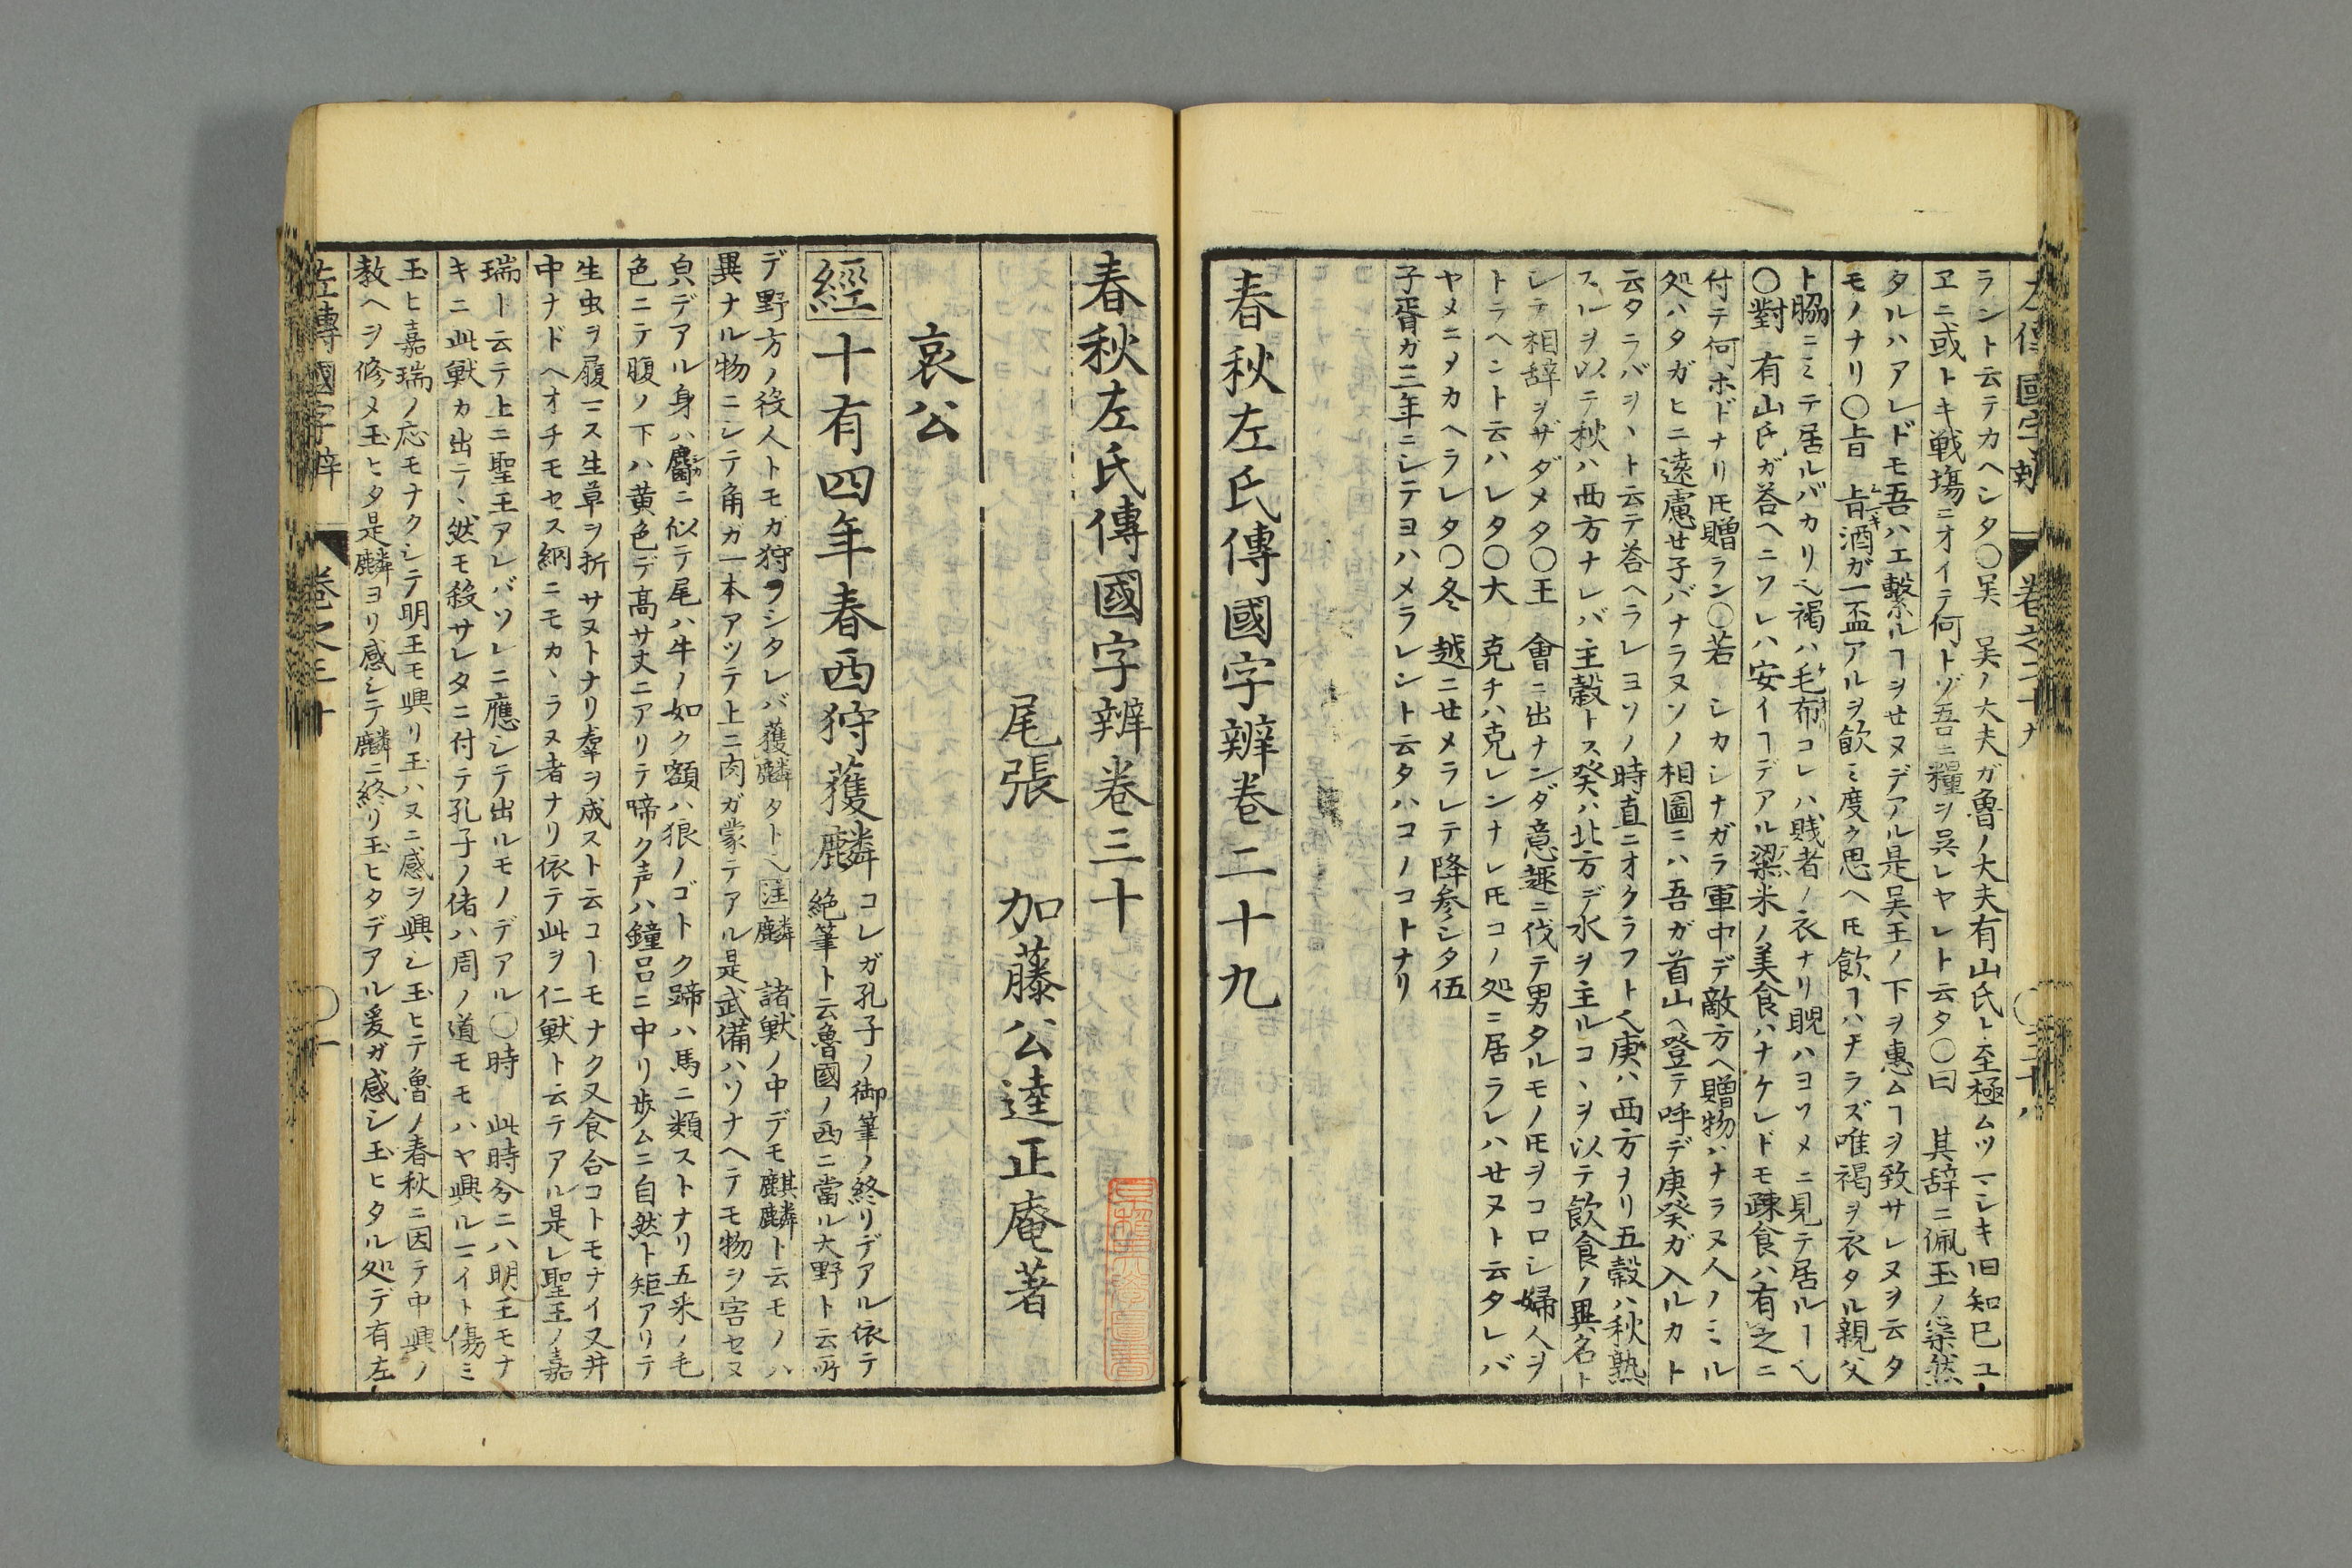 ラント云テカヘシタ〇呉　呉ノ大夫ガ魯ノ大夫有山氏ト至極ムツマシキ旧知巳ユ
ヱニ或トキ戦塲ニオイテ何トゾ吾ニ糧ヲ呉レヤレト云タ〇曰　其辞ニ佩玉ノ繠然
タルハアレドモ吾ハエ繋ルヿヲせヌデアル是呉王ノ下ヲ惠ムヿヲ致サレヌヲ云タ
モノナリ〇旨　旨酒ガ一盃アルヲ飲ミ度ク思ヘ𪜈飲ヿハナラズ唯褐ヲ衣タル親父
ト脇ニミテ居ルバカリ也褐ハ毛布コレハ賎者ノ衣ナリ睨ハヨソメニ見テ居ルヿ也
〇對　有山氏ガ荅ヘニソレハ安イヿデアル粱米ノ美食ハナケレドモ疎食ハ有之ニ
付テ何ホドナリ𪜈贈ラン〇若　シカシナガラ軍中デ敵方ヘ贈物ハナラヌ人ノミル
処ハタガヒニ遠慮せ子バナラヌソノ相圖ニハ吾ガ首山ヘ登テ呼デ庚癸ガ入ルカト
云タラバヲヽト云テ荅ヘラレヨソノ時直ニオクラフト也庚ハ西方ナリ五穀ハ秋熟
スルヲ以テ秋ハ西方ナレバ主穀トス癸ハ北方デ水ヲ主ルコヽヲ以テ飲食ノ異名ト
シテ相辞ヲサダメタ〇王　會ニ出ナンダ意趣ニ伐テ男タルモノ𪜈ヲコロシ婦人ヲ
トラヘント云ハレタ〇大　克チハ克レンナレ𪜈コノ処ニ居ラレハせヌト云タレバ
ヤメニメカヘラレタ〇冬　越ニせメラレテ降参シタ伍
子胥ガ三年ニシテヨハメラレント云タハコノコトナリ
春秋左氏傳國字辨卷二十九
春秋左氏傳國字辨卷三十
尾張　加藤公逵正庵著
哀公
經十有四年春西狩獲麟
コレガ孔子ノ御筆ノ終リデアル依テ
絶筆ト云魯國ノ西ニ當ル大野ト云所
デ野方ノ役人トモガ狩ヲシタレバ獲麟タト也注麟　諸獣ノ中デモ麒麟ト云モノハ
異ナル物ニシテ角ガ一本アツテ上ニ肉ガ蒙テアル是武備ハソナヘテモ物ヲ害セヌ
㒵デアル身ハ麕ニ似テ尾ハ牛ノ如ク額ハ狼ノゴトク蹄ハ馬ニ類ストナリ五采ノ毛
色ニテ腹ノ下ハ黄色デ高サ丈ニアリテ啼ク声ハ鐘呂ニ中リ歩ムニ自然ト矩アリテ
生虫ヲ履マス生草ヲ折サヌトナリ羣ヲ成スト云コーモナク又食合コトモナイ又井
中ナドヘオチモセス網ニモカヽラヌ者ナリ依テ此ヲ仁獣ト云テアル是レ聖王ノ嘉
瑞ト云テ上ニ聖王アレバソレニ應シテ出ルモノデアル〇時　此時分ニハ明王モナ
キニ此獣カ出テ、然モ殺サレタニ付テ孔子ノ偖ハ周ノ道モモハヤ興ルマイト傷ミ
玉ヒ嘉瑞ノ応モナクシテ明王モ興リ玉ハヌニ感ヲ興シ玉ヒテ魯ノ春秋ニ因テ中興ノ
教ヘヲ修メ玉ヒタ是麟ヨリ感シテ麟ニ終リ玉ヒタデアル爰ガ感シ玉ヒタル処デ有左
左傳國字辨　卷之三十　〇一